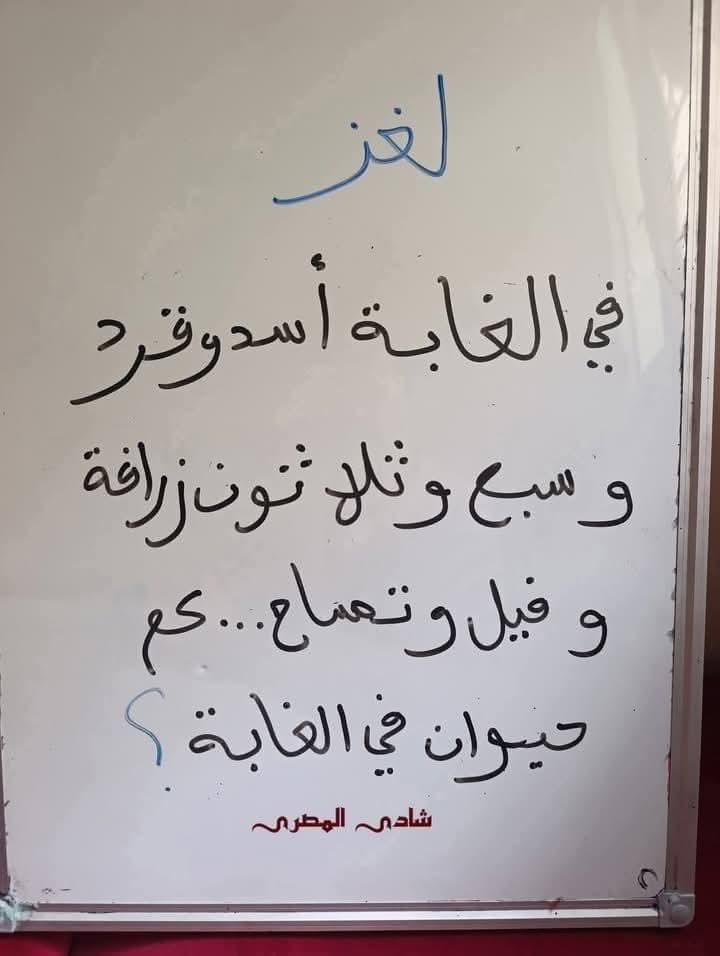 لغز
في الغابة أسد وقرد
و سبع و ثلاثون زرافة
و فيل و تمساح...كم
حيوان في الغابة ؟
شادي المصري